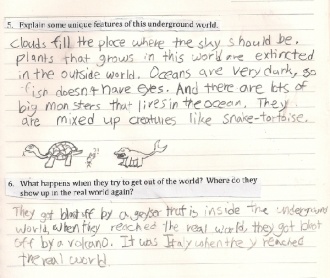 5. Explain some unique features of this underground world.
clouds fill the place where the sky should be.
plants that grows in this world are extincted
in the outside world. Oceans are very dark, so
fish doesn't have eyes. And there are lots of
big monsters that lives in the ocean. They
are mixed up creatures like snake-tortoise.
6. What happens when they try to get out of the world? Where do they
show up in the real world again?
They got blast off by a geyser that is inside the underground
world, when they reached the real world, they got blast
off by a volcano. It was Italy when they reached
the real world